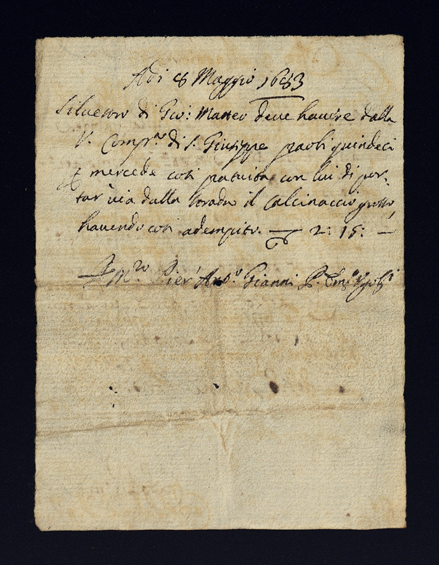 Adi 8 Maggio 1683
Silvestro di Gio: Matteo deve havere dalla
V. Comp.ª di S. Giuseppe paoli quindeci
mercede così pattuita con lui di por-
tar via dalla strada il Calcinaccio grosso,
havendo così adempito. 2: 15: —
Pier' Ant.º Gianni